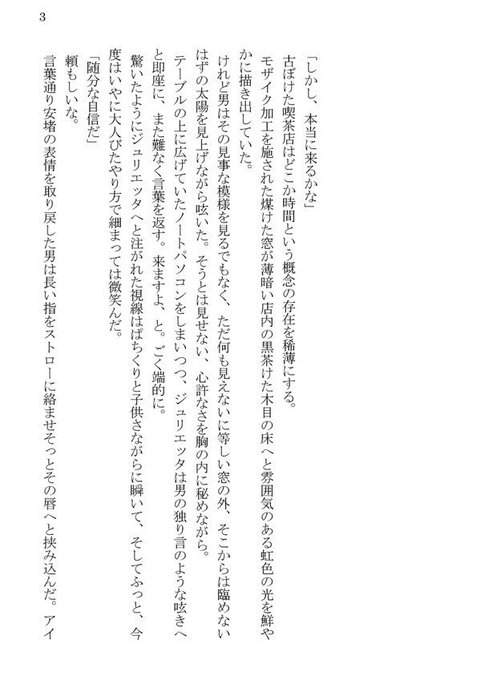 3
「しかし、本当に来るかな」
古ぼけた喫茶店はどこか時間という概念の存在を稀薄にする。
モザイク加工を施された煤けた窓が薄暗い店内の黒茶けた木目の床へと雰囲気のある虹色の光を鮮や
かに描き出していた。
けれど男はその見事な模様を見るでもなく、ただ何も見えないに等しい窓の外、そこからは臨めない
はずの太陽を見上げながら呟いた。そうとは見せない、心許なさを胸の内に秘めながら。
テーブルの上に広げていたノートパソコンをしまいつつ、ジュリエッタは男の独り言のような呟きへ
と即座に、また難なく言葉を返す。来ますよ、と。ごく端的に。
驚いたようにジュリエッタへと注がれた視線はぱちくりと子供さながらに瞬いて、そしてふっと、今
度はいやに大人びたやり方で細まっては微笑んだ。
「随分な自信だ」
頼もしいな。
言葉通り安堵の表情を取り戻した男は長い指をストローに絡ませそっとその唇へと挟み込んだ。アイ